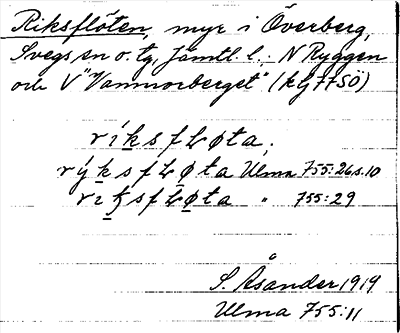 Riksflöten, myr i Överberg,
Svegs sn o. tg, Jämtl. l.; N Ryggen
och V "Vammorberget" (kg 77SÖ)
ríksfLøta.
rýksfLøta Ulma 755:26 s.10
rıksfLøta " 755:29
S. Åsander 1919
Ulma 755:11